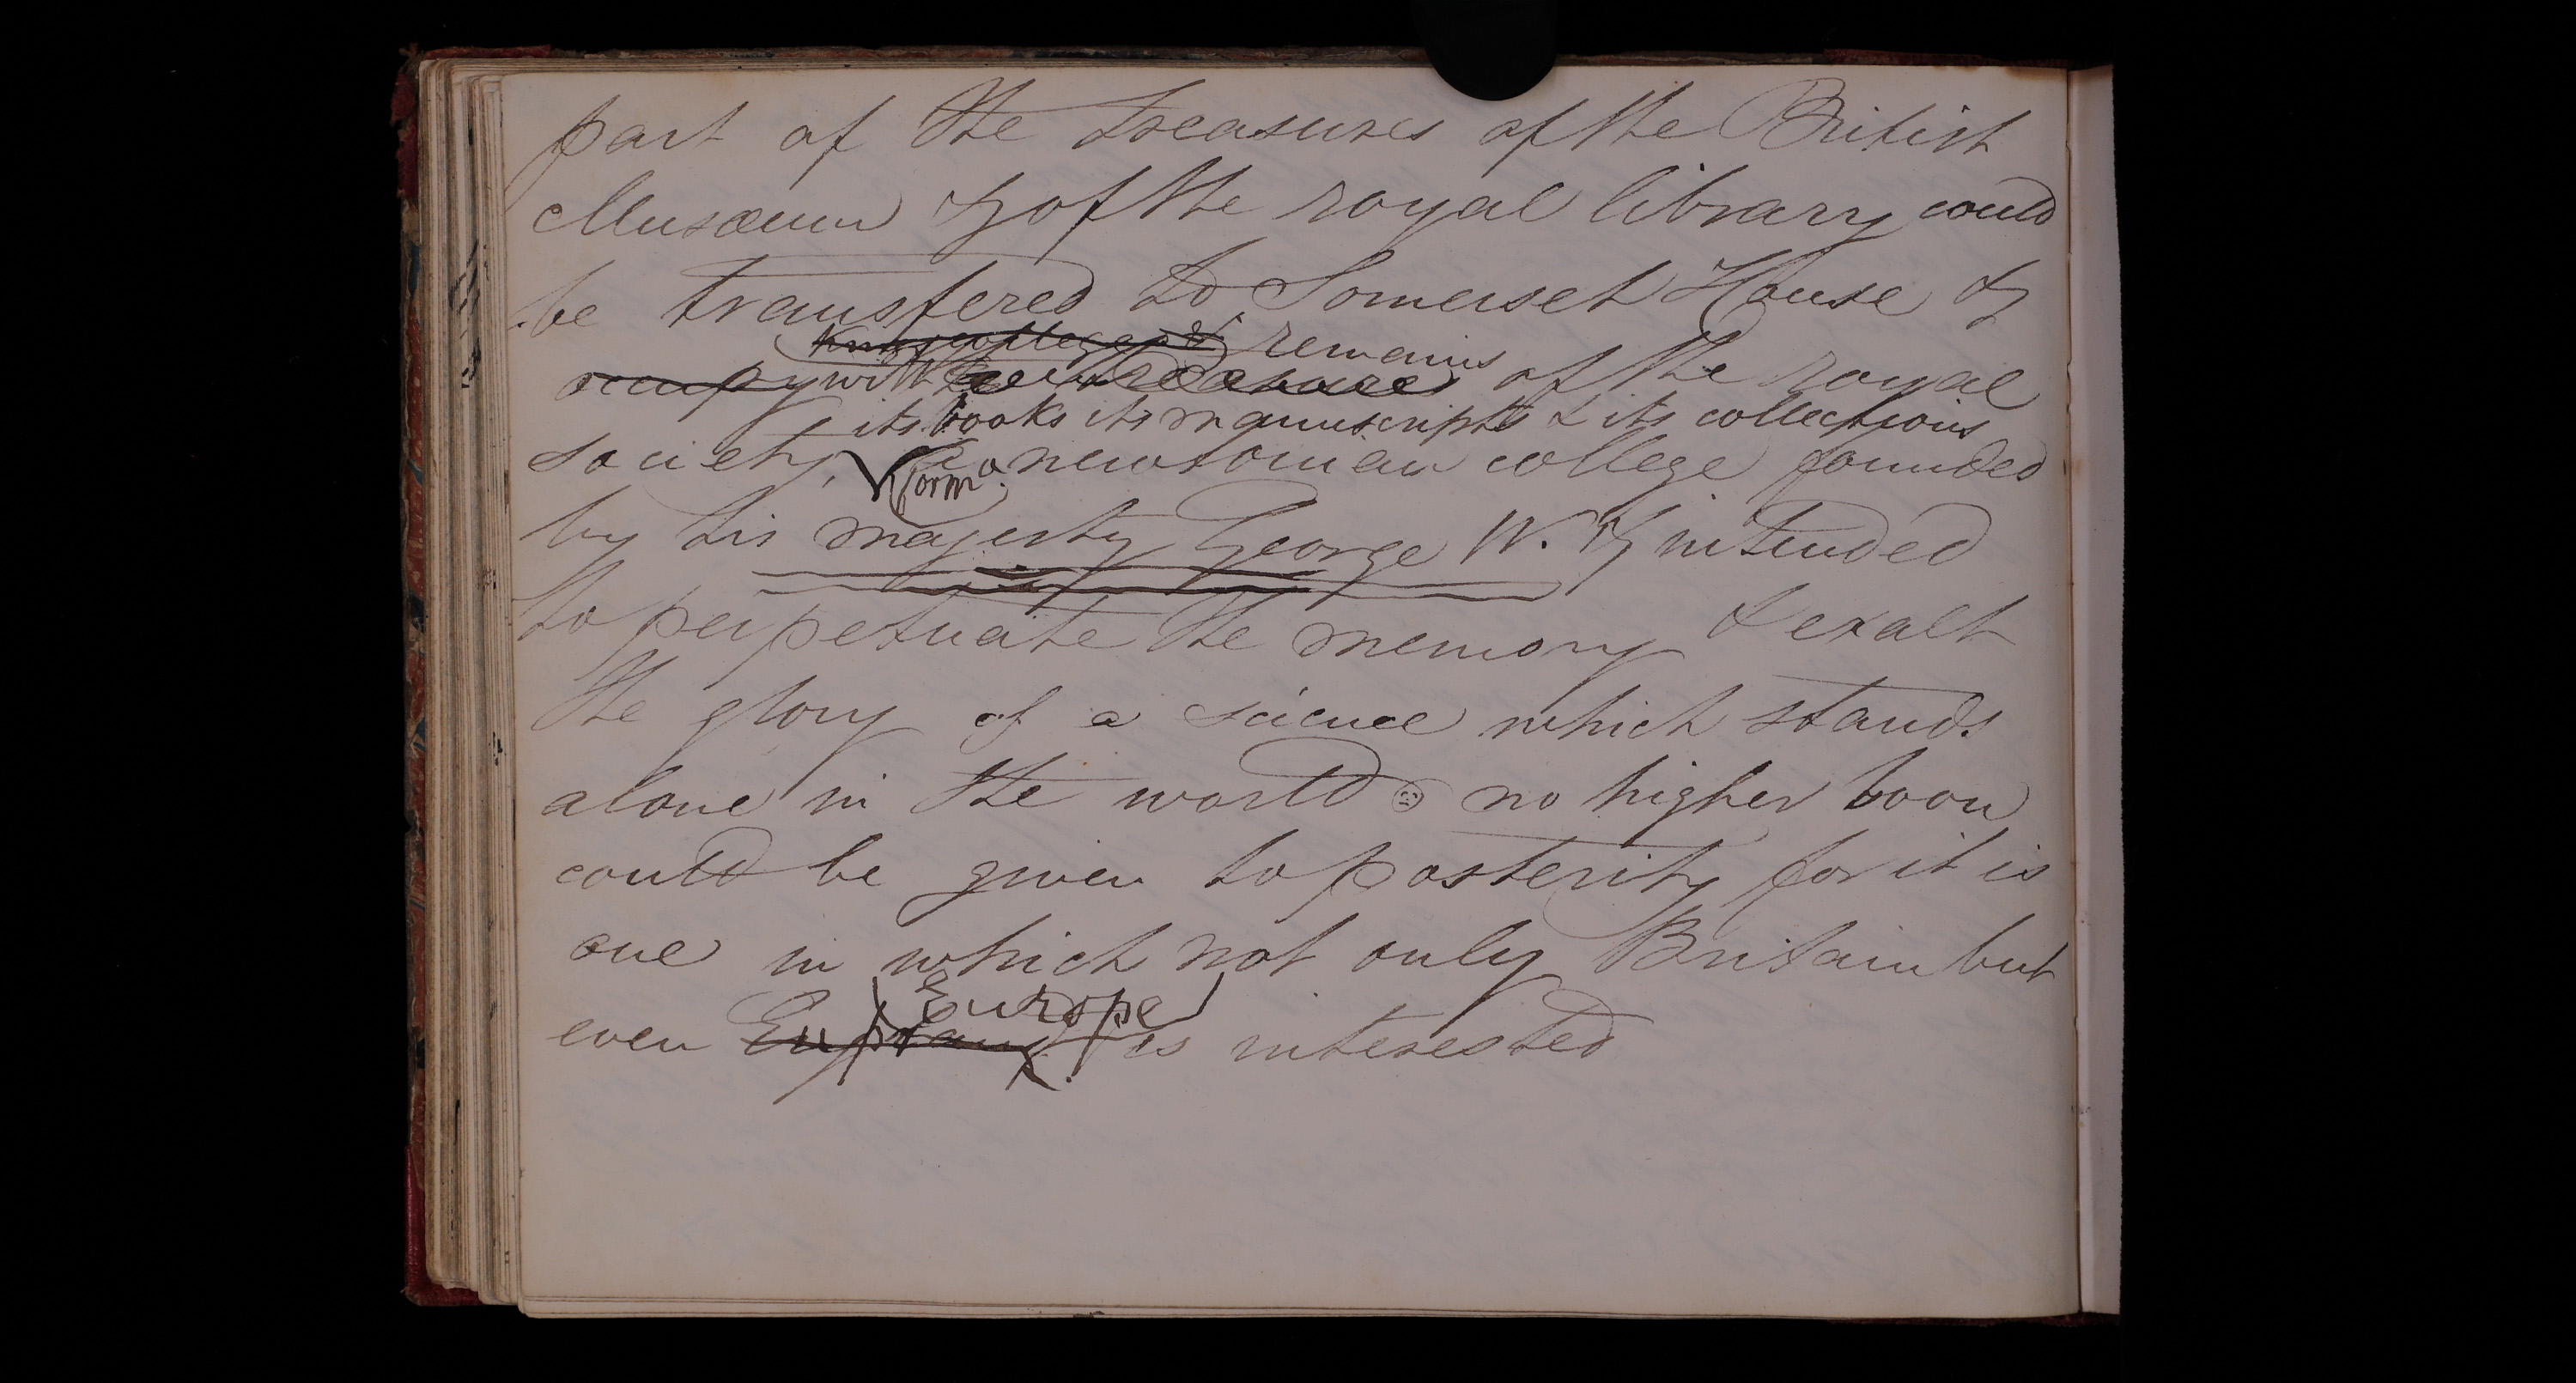 part of the treasures of the British
Musæum & of the royal library could
be transfered to Somerset House &
remains
occupy with of the royal
its books its manuscripts & its collections
society, a newtonian college founded
form
by his majesty George IV. & intended
to perpetuate the memory & exalt
the glory of a science which stands
alone in the world no higher boon
could be given to posterity for it is
one in which not only Britain but
Europe
even is interested